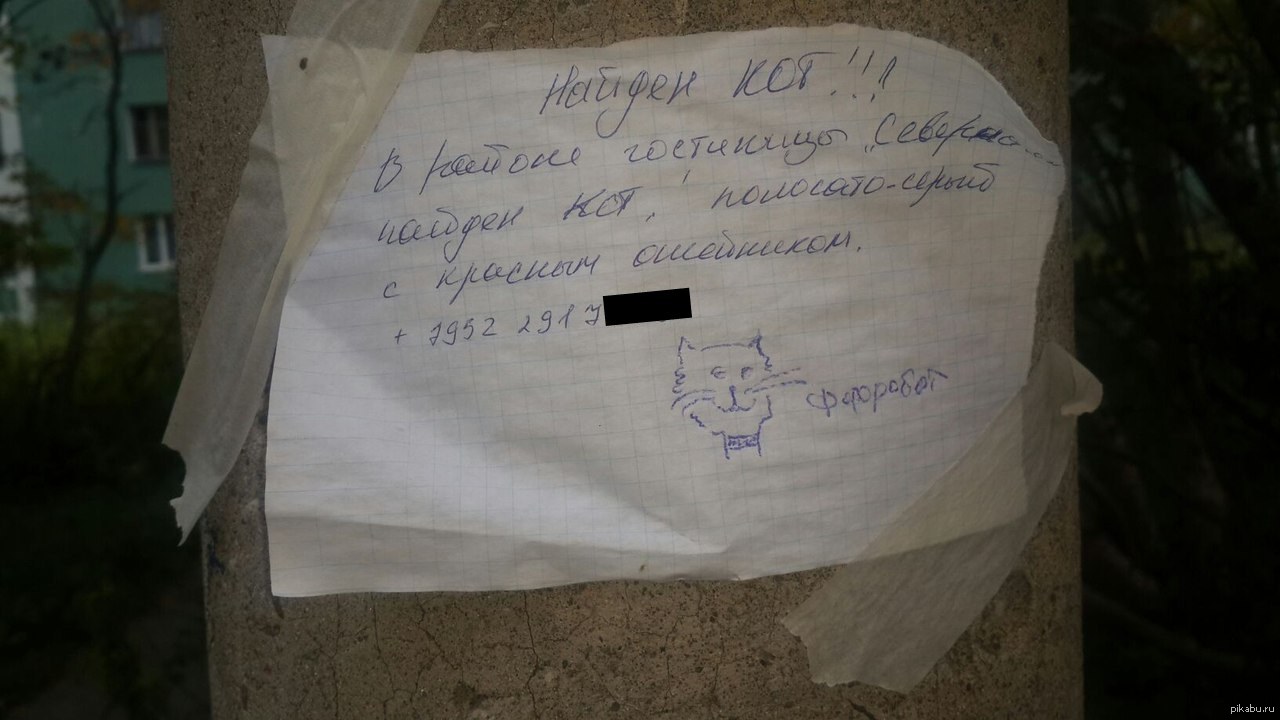 Найден КОТ!!!
В районе гостиницы "Северная
найден КОТ, полосато-серый
с красным ошейником.
+ 7952 291 7
фоторобот
pikabu.ru